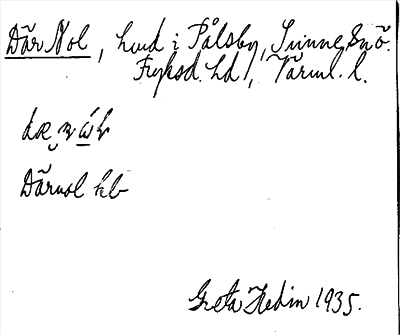 Där Nol, hmd i Pålsby, Sunne, Snö.
Fryksd. hd, Värml. l.
Därnol kb
Greta Hedin 1935.